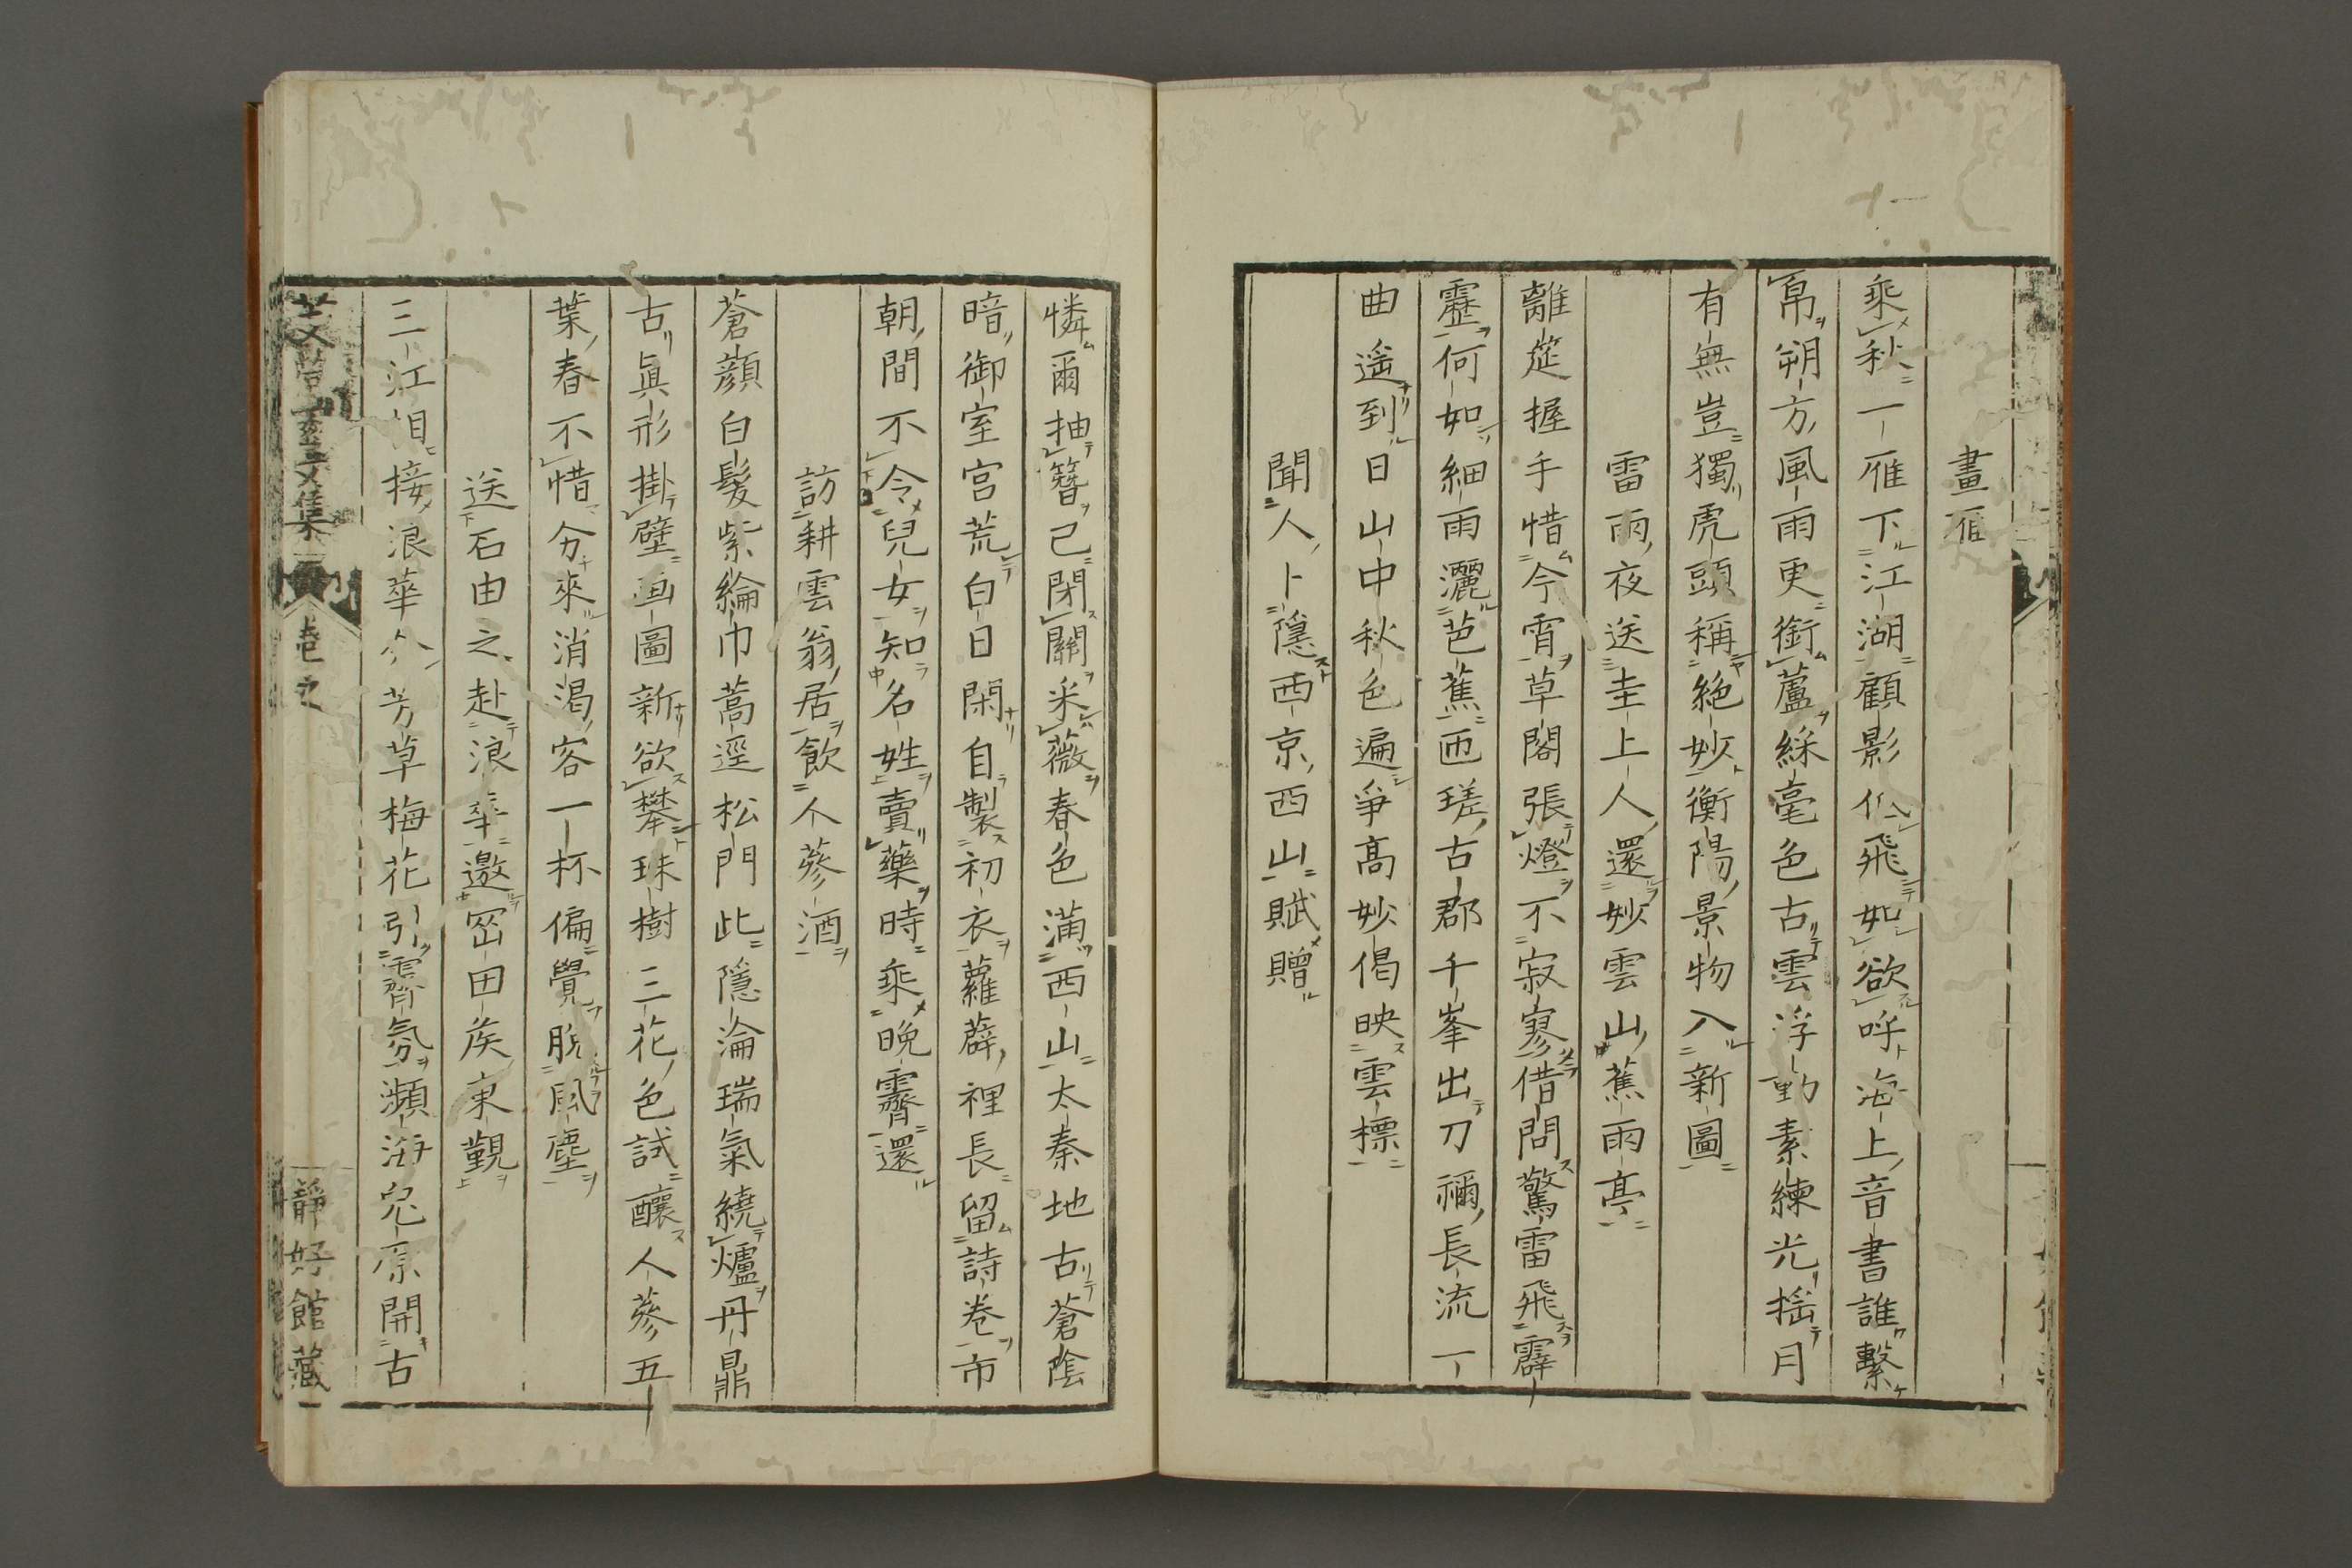 畫雁
乘秋一雁下江湖顧影低飛如欲呼海上音書誰繫
帛朔方風雨更銜蘆綵毫色古雲浮動素練光搖月
有無豈獨虎頭稱絕妙衡陽景物入新圖
雷雨夜送圭上人還妙雲山蕉雨亭
離筵握手惜今宵草閣張燈不寂寥借問驚雷飛霹
靂何如細雨灑芭蕉匝瑳古郡千峯出刀禰長流一
曲遙到日山中秋色遍爭高妙偈映雲標
聞人卜隱西京西山賦贈
憐爾抽簪已閉關采薇春色滿西山太秦地古蒼陰
暗御室宮荒白日閑自製初衣蘿薜裡長留詩卷市
朝間不令兒女知名姓賣藥時乘晚霽還
訪耕雲翁居飲人蔘酒
蒼顔白髮紫綸巾蒿逕松門此隱淪瑞氣繞爐丹鼎
古眞形掛壁画圖新欲攀珠樹三花色試釀人蔘五
葉春不惜分來消渴客一杯偏覺脫風塵
送石由之赴浪華邀笽田矦東覲
三江相接浪華分芳草梅花引霽氛瀕海兒原開古
文集
卷之
靜好館藏